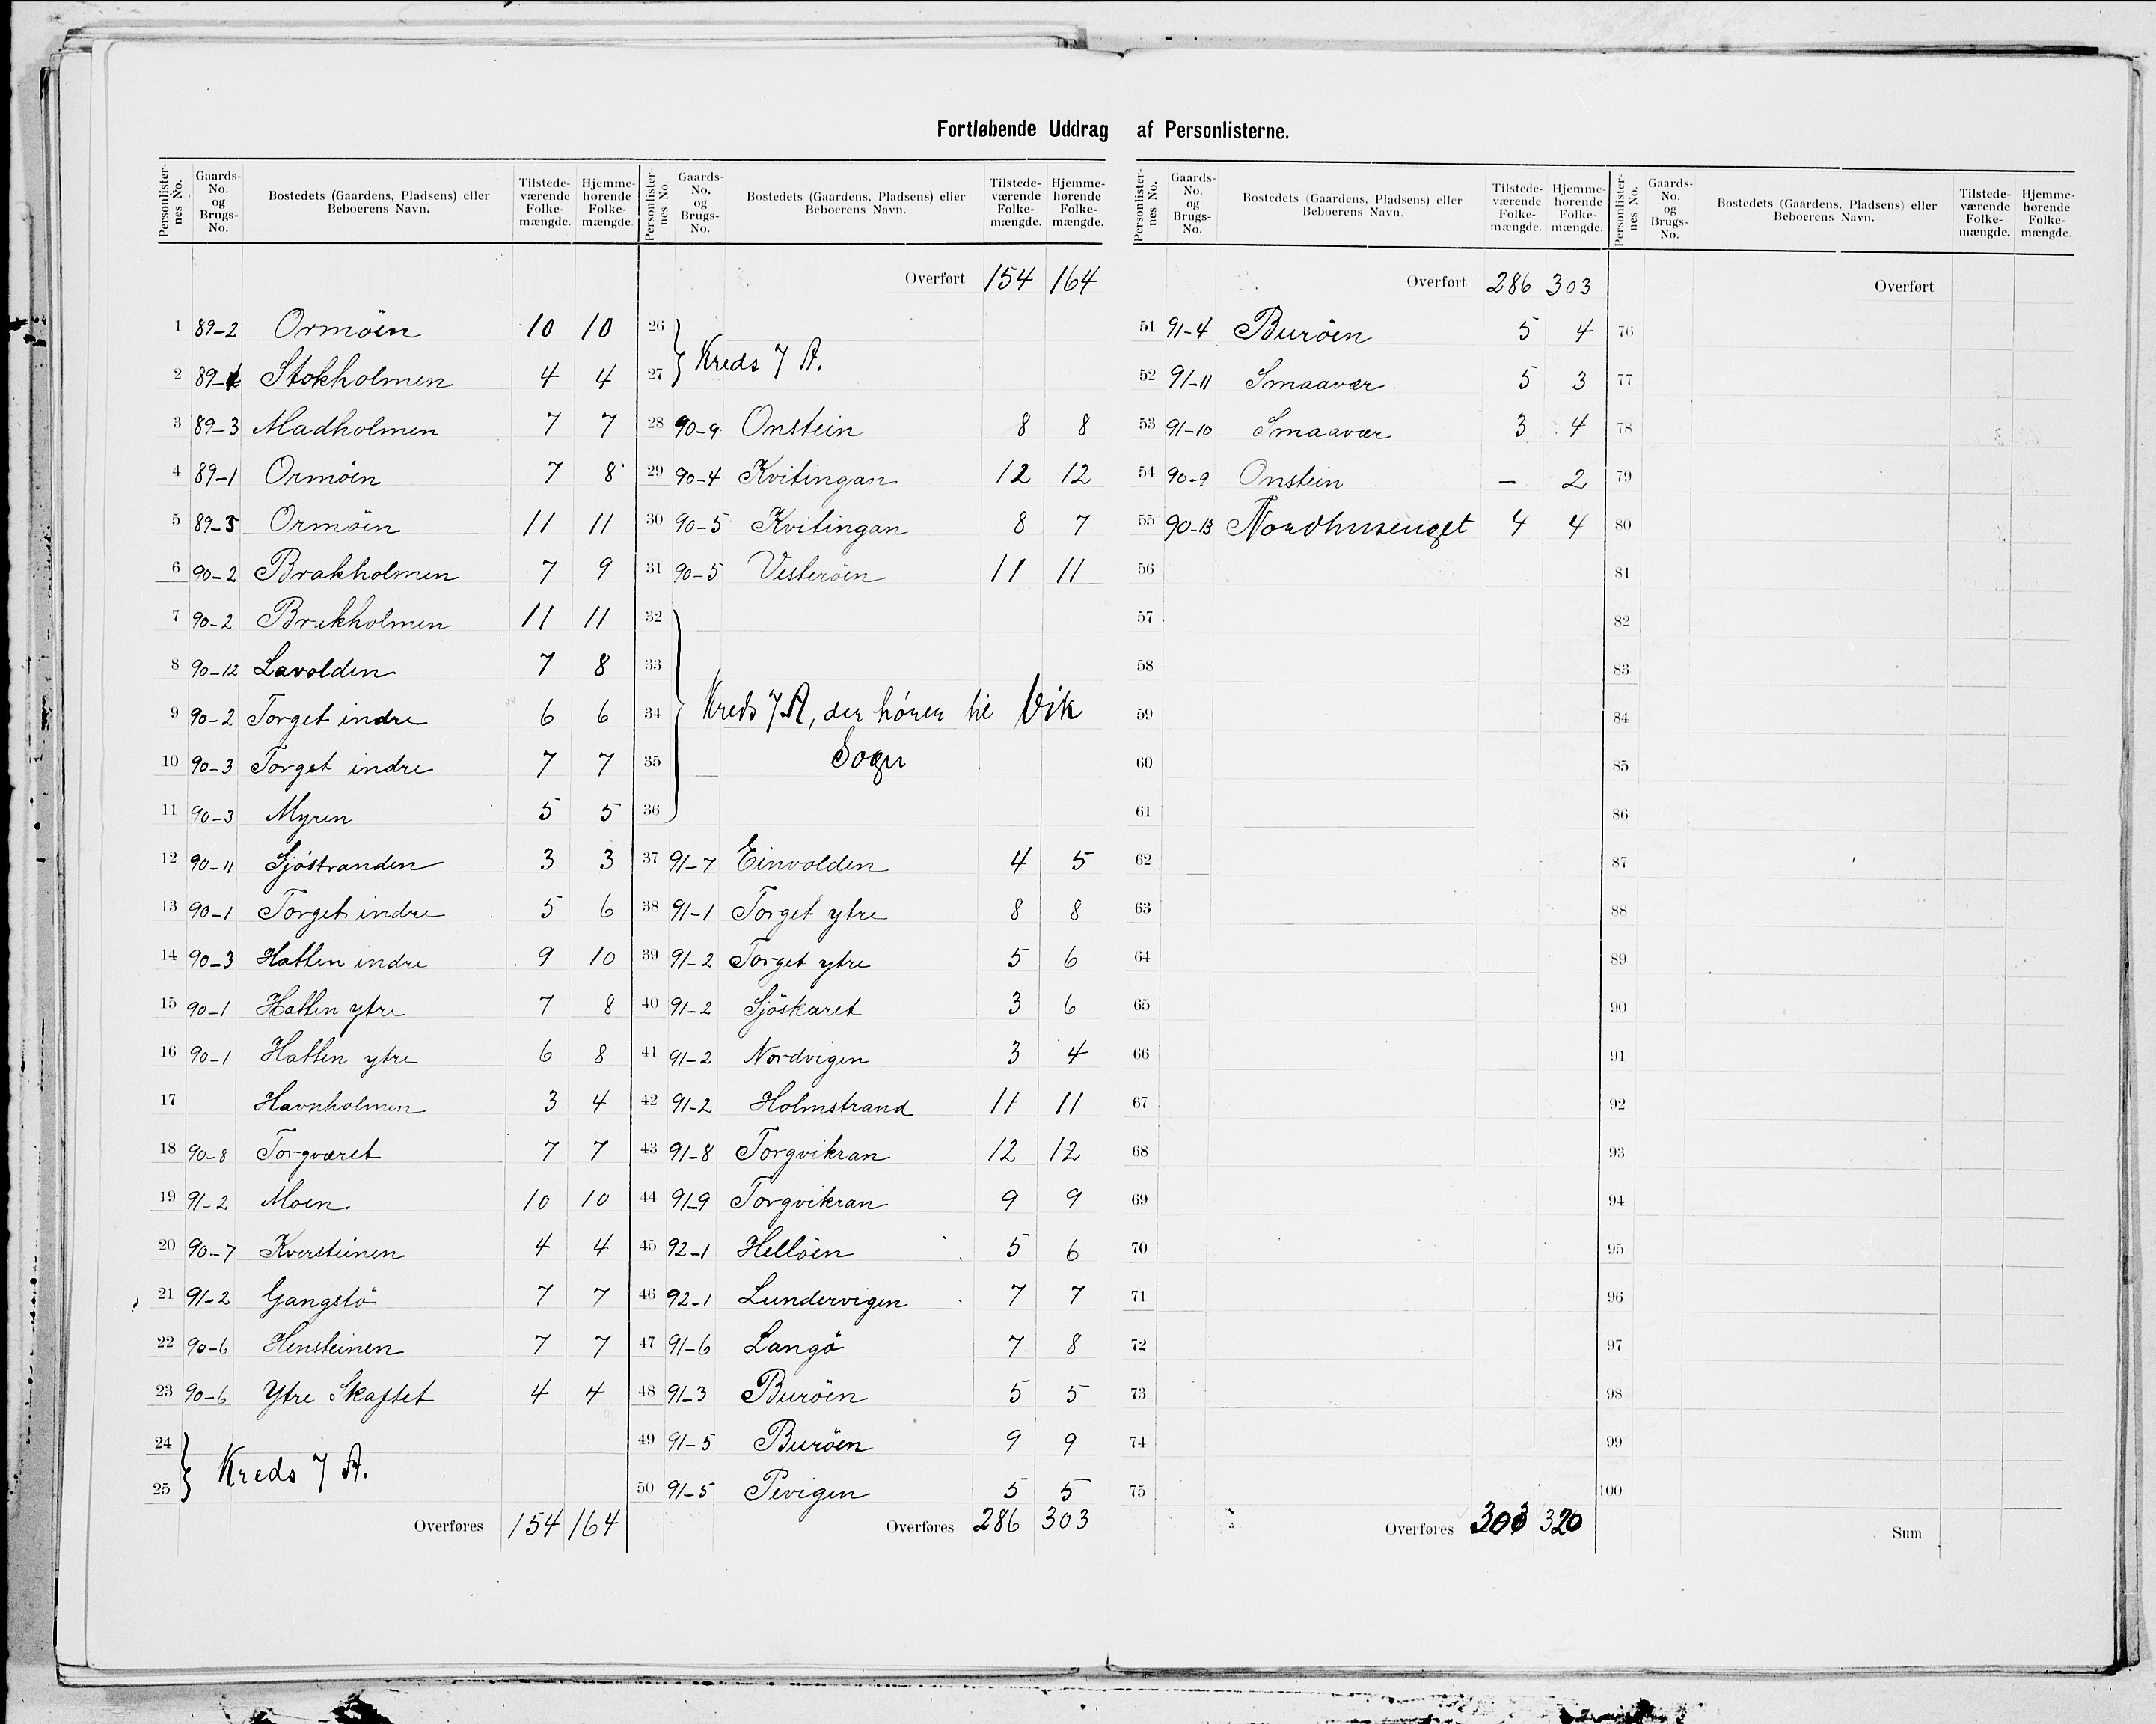 Fortløbende Uddrag af Personlisterne.
Personlisternes No. Gaards-No. og Brugs-No. Bostedets (Gaardens, Pladsens) eller Beboerens Navn. Tilstedeværende Folkemængde. Hjemmehørende Folkemængde.
1 89-2 Ormöen 10 10
2 89- Stokholmen 4 4
3 89-3 Madholmen 7 7
4 89-1 Ormöen 7 8
5 89-3 Ormöen 11 11
6 90-2 Brakholmen 7 9
7 90-2 Brakholmen 11 11
8 90-12 Lavolden 7 8
9 90-2 Torget indre 6 6
10 90-3 Torget indre 7 7
11 90-3 Myren 5 5
12 90-11 Sjöstranden 3 3
13 90-1 Torget indre 5 6
14 90-3 Hatten indre 9 10
15 90-1 Hatten ytre 7 8
16 90-1 Hatten ytre 6 8
17 Havnholmen 3 4
18 90-8 Torgværet 7 7
19 91-2 Moen 10 10
20 90-7 Kversteinen 4 4
21 91-2 Gangstö 7 7
22 90-6 Hensteinen 7 7
23 90-6 Ytre Skaftet 4 4
24
Kreds 7 A.
25
Overføres 154 164
Personlisternes No. Gaards-No. og Brugs-No. Bostedets (Gaardens, Pladsens) eller Beboerens Navn. Tilstedeværende Folkemængde. Hjemmehørende Folkemængde.
Overført 154 164
26
Kreds 7 A.
27
28 90-9 Onstein 8 8
29 90-4 Kvitingan 12 12
30 90-5 Kvitingan 8 7
31 90-5 Vesteröen 11 11
32
33
34 Kreds 7A, der hörer til Vik
35 Sogn
36
37 91-7 Einvolden 4 5
38 91-1 Torget ytre 8 8
39 91-2 Torget ytre 5 6
40 91-2 Sjöskaret 3 6
41 91-2 Nordvigen 3 4
42 91-2 Holmstrand 11 11
43 91-8 Torgvikran 12 12
44 91-9 Torgvikran 9 9
45 92-1 Hellöen 5 6
46 92-1 Lundervigen 7 7
47 91-6 Langö 7 8
48 91-3 Buröen 5 5
49 91-5 Buröen 9 9
50 91-5 Pevigen 5 5
Overføres 286 303
Personlisternes No. Gaards-No. og Brugs-No. Bostedets (Gaardens, Pladsens) eller Beboerens Navn. Tilstedeværende Folkemængde. Hjemmehørende Folkemængde.
Overført 286 303
51 91-4 Buröen 5 4
52 91-11 Smaavær 5 3
53 91-10 Smaavær 3 4
54 90-9 Onstein - 2
55 90-13 Nordhusenget 4 4
56
57
58
59
60
61
62
63
64
65
66
67
68
69
70
71
72
73
74
75
Overføres 303 320
Personlisternes No. Gaards-No. og Brugs-No. Bostedets (Gaardens, Pladsens) eller Beboerens Navn. Tilstedeværende Folkemængde. Hjemmehørende Folkemængde.
Overført
76
77
78
79
80
81
82
83
84
85
86
87
88
89
90
91
92
93
94
95
96
97
98
99
100
Sum